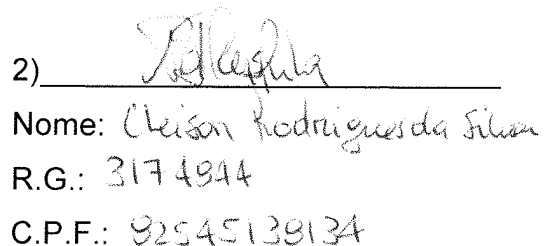 2)
Nome: Cleison Rodrigues da Silva
R.G.: 3174944
C.P.F.: 92545139134